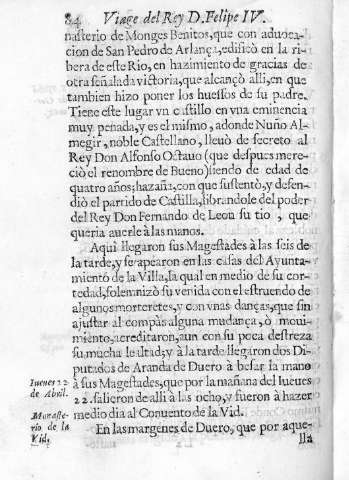 84 Viage del Rey D. Felipe IV.
nasterio de Monges Benitos, que con aduoca-
cion de San Pedro de Arlança, edificò en la ri-
bera de este Rio, en hazimiento de gracias de
otra señalada victoria, que alcançò alli, en que
tambien hizo poner los huessos de su padre.
Tiene este lugar vn castillo en vna eminencia
muy penada, y es el mismo, adonde Nuño Al-
megir, noble Castellano, lleuò de secreto al
Rey Don Alfonso Octauo (que despues mere-
ciò el renombre de Bueno) siendo de edad de
quatro años; hazaña, con que sustentò, y defen-
diò el partido de Castilla, librandole del poder
del Rey Don Fernando de Leon su tio, que
queria auerle à las manos.
Aqui llegaron sus Magestades à las seis de
la tarde, y se apearon en las casas del Ayunta-
miento de la Villa, la qual en medio de su cor-
tedad, solemnizò su venida con el estruendo de
algunos morteretes, y con vnas danças, que sin
ajustar al compàs alguna mudança, ò moui-
miento, acreditaron, aun con su poca destreza
su mucha lealtad; y à la tarde llegaron dos Di-
putados de Aranda de Duero à besar la mano
Iueues 22
à sus Magestades, que por la mañana del Iueues
de Abril.
22. salieron de alli à las ocho, y fueron à hazer
Monaste-
medio dia al Conuento de la Vid.
rio de la
Vid.
En las margenes de Duero, que por aque-
lla